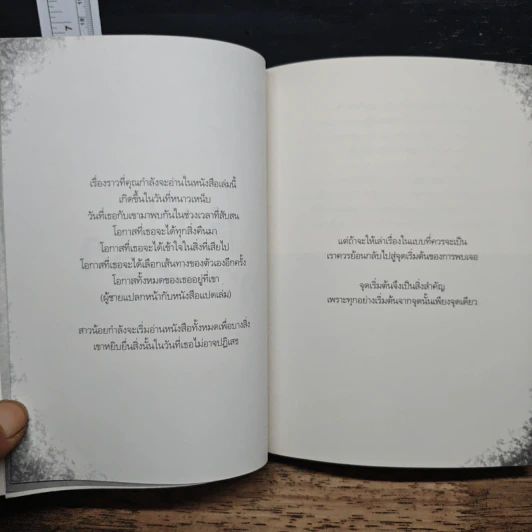 เรื่องราวที่คุณกำลังจะอ่านในหนังสือเล่มนี้
เกิดขึ้นในวันที่หนาวเหน็บ
วันที่เธอกับเขามาพบกันในช่วงเวลาที่สับสน
โอกาสที่เธอจะได้ทุกสิ่งคืนมา
โอกาสที่เธอจะได้เข้าใจในสิ่งที่เสียไป
โอกาสที่เธอจะได้เลือกเส้นทางของตัวเองอีกครั้ง
โอกาสทั้งหมดของเธออยู่ที่เขา
(ผู้ชายแปลกหน้ากับหนังสือแปดเล่ม)
สาวน้อยกำลังจะเริ่มอ่านหนังสือทั้งหมดเพื่อบางสิ่ง
เขาหยิบยื่นสิ่งนั้นในวันที่เธอไม่อาจปฏิเสธ
แต่ถ้าจะให้เล่าเรื่องในแบบที่ควรจะเป็น
เราควรย้อนกลับไปสู่จุดเริ่มต้นของการพบเจอ
จุดเริ่มต้นจึงเป็นสิ่งสำคัญ
เพราะทุกอย่างเริ่มต้นจากจุดนั้นเพียงจุดเดียว